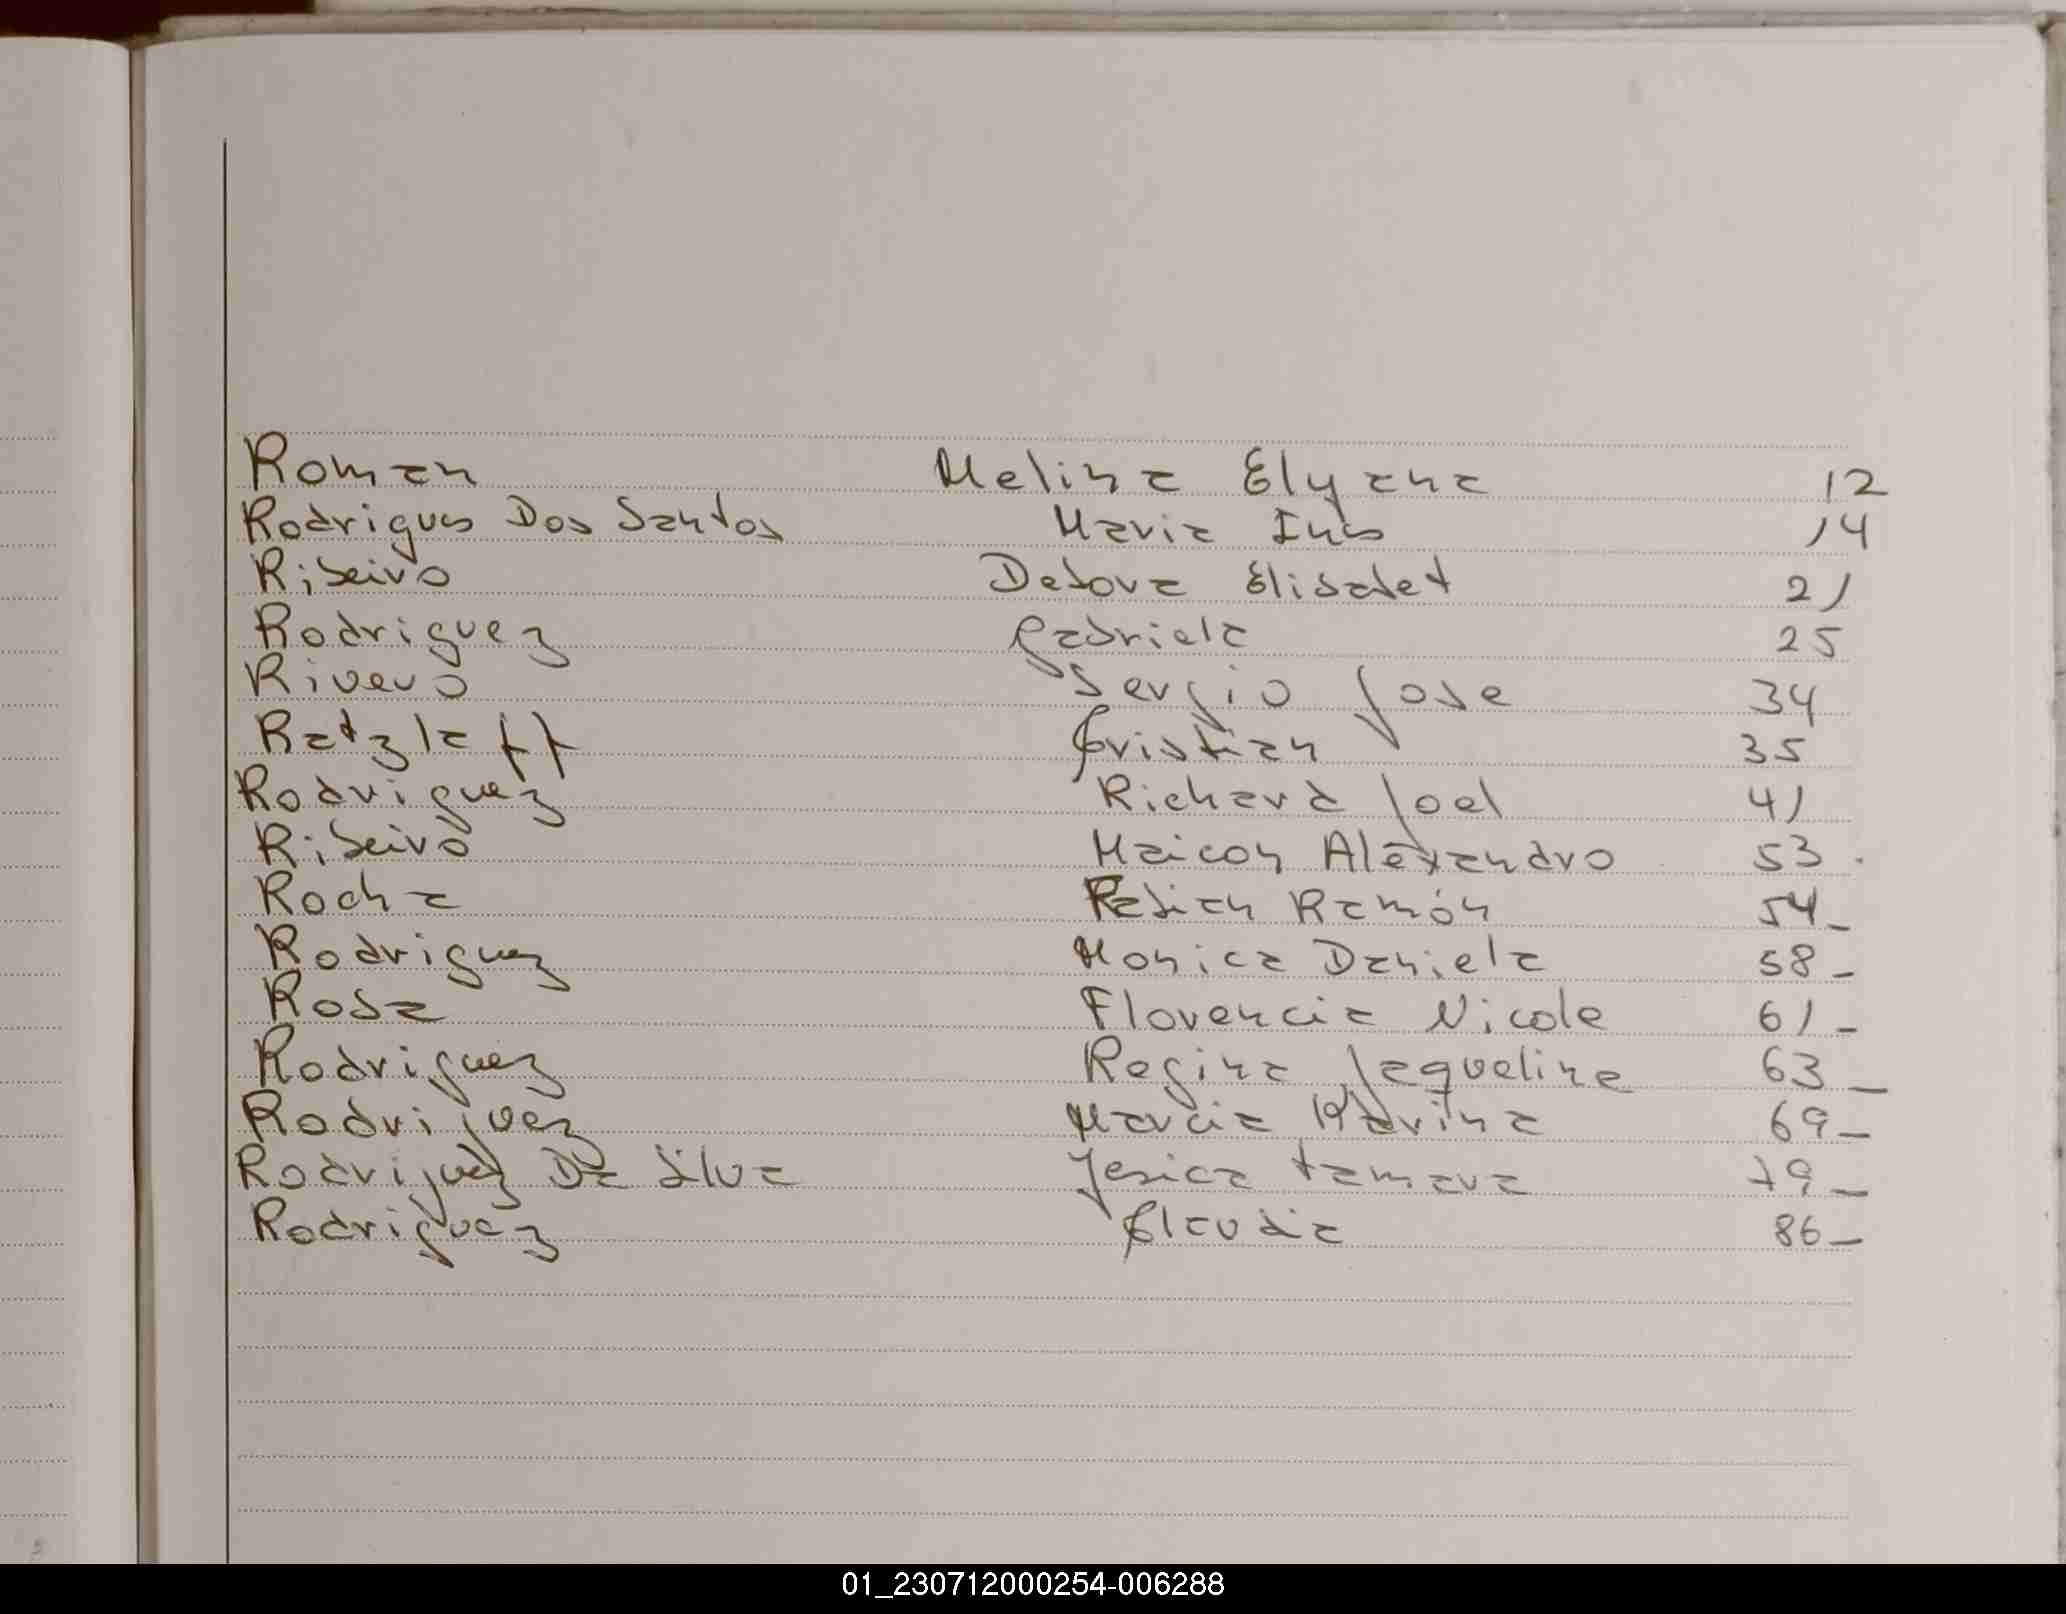 Roman Melina Elyana 12
Rodrigues Dos Santos Maria Ines 14
Ribeiro Debora Elisabet 21
Rodriguez Gabriela 25
Rivero Sergio Jose 34
Ratzlaff Cristian 35
Rodriguez Richard Joel 41
Ribeiro Maicon Alexandro 53.
Rocha Fabian Ramón 54_
Rodriguez Monica Daniela 58_
Rosa Florencia Nicole 61_
Rodriguez Regina Jaqueline 63_
Rodriguez Marcia Karina 69_
Rodriguez Da Silva Yesica tamara 79_
Rodriguez Claudia 86_
01_230712000254-006288